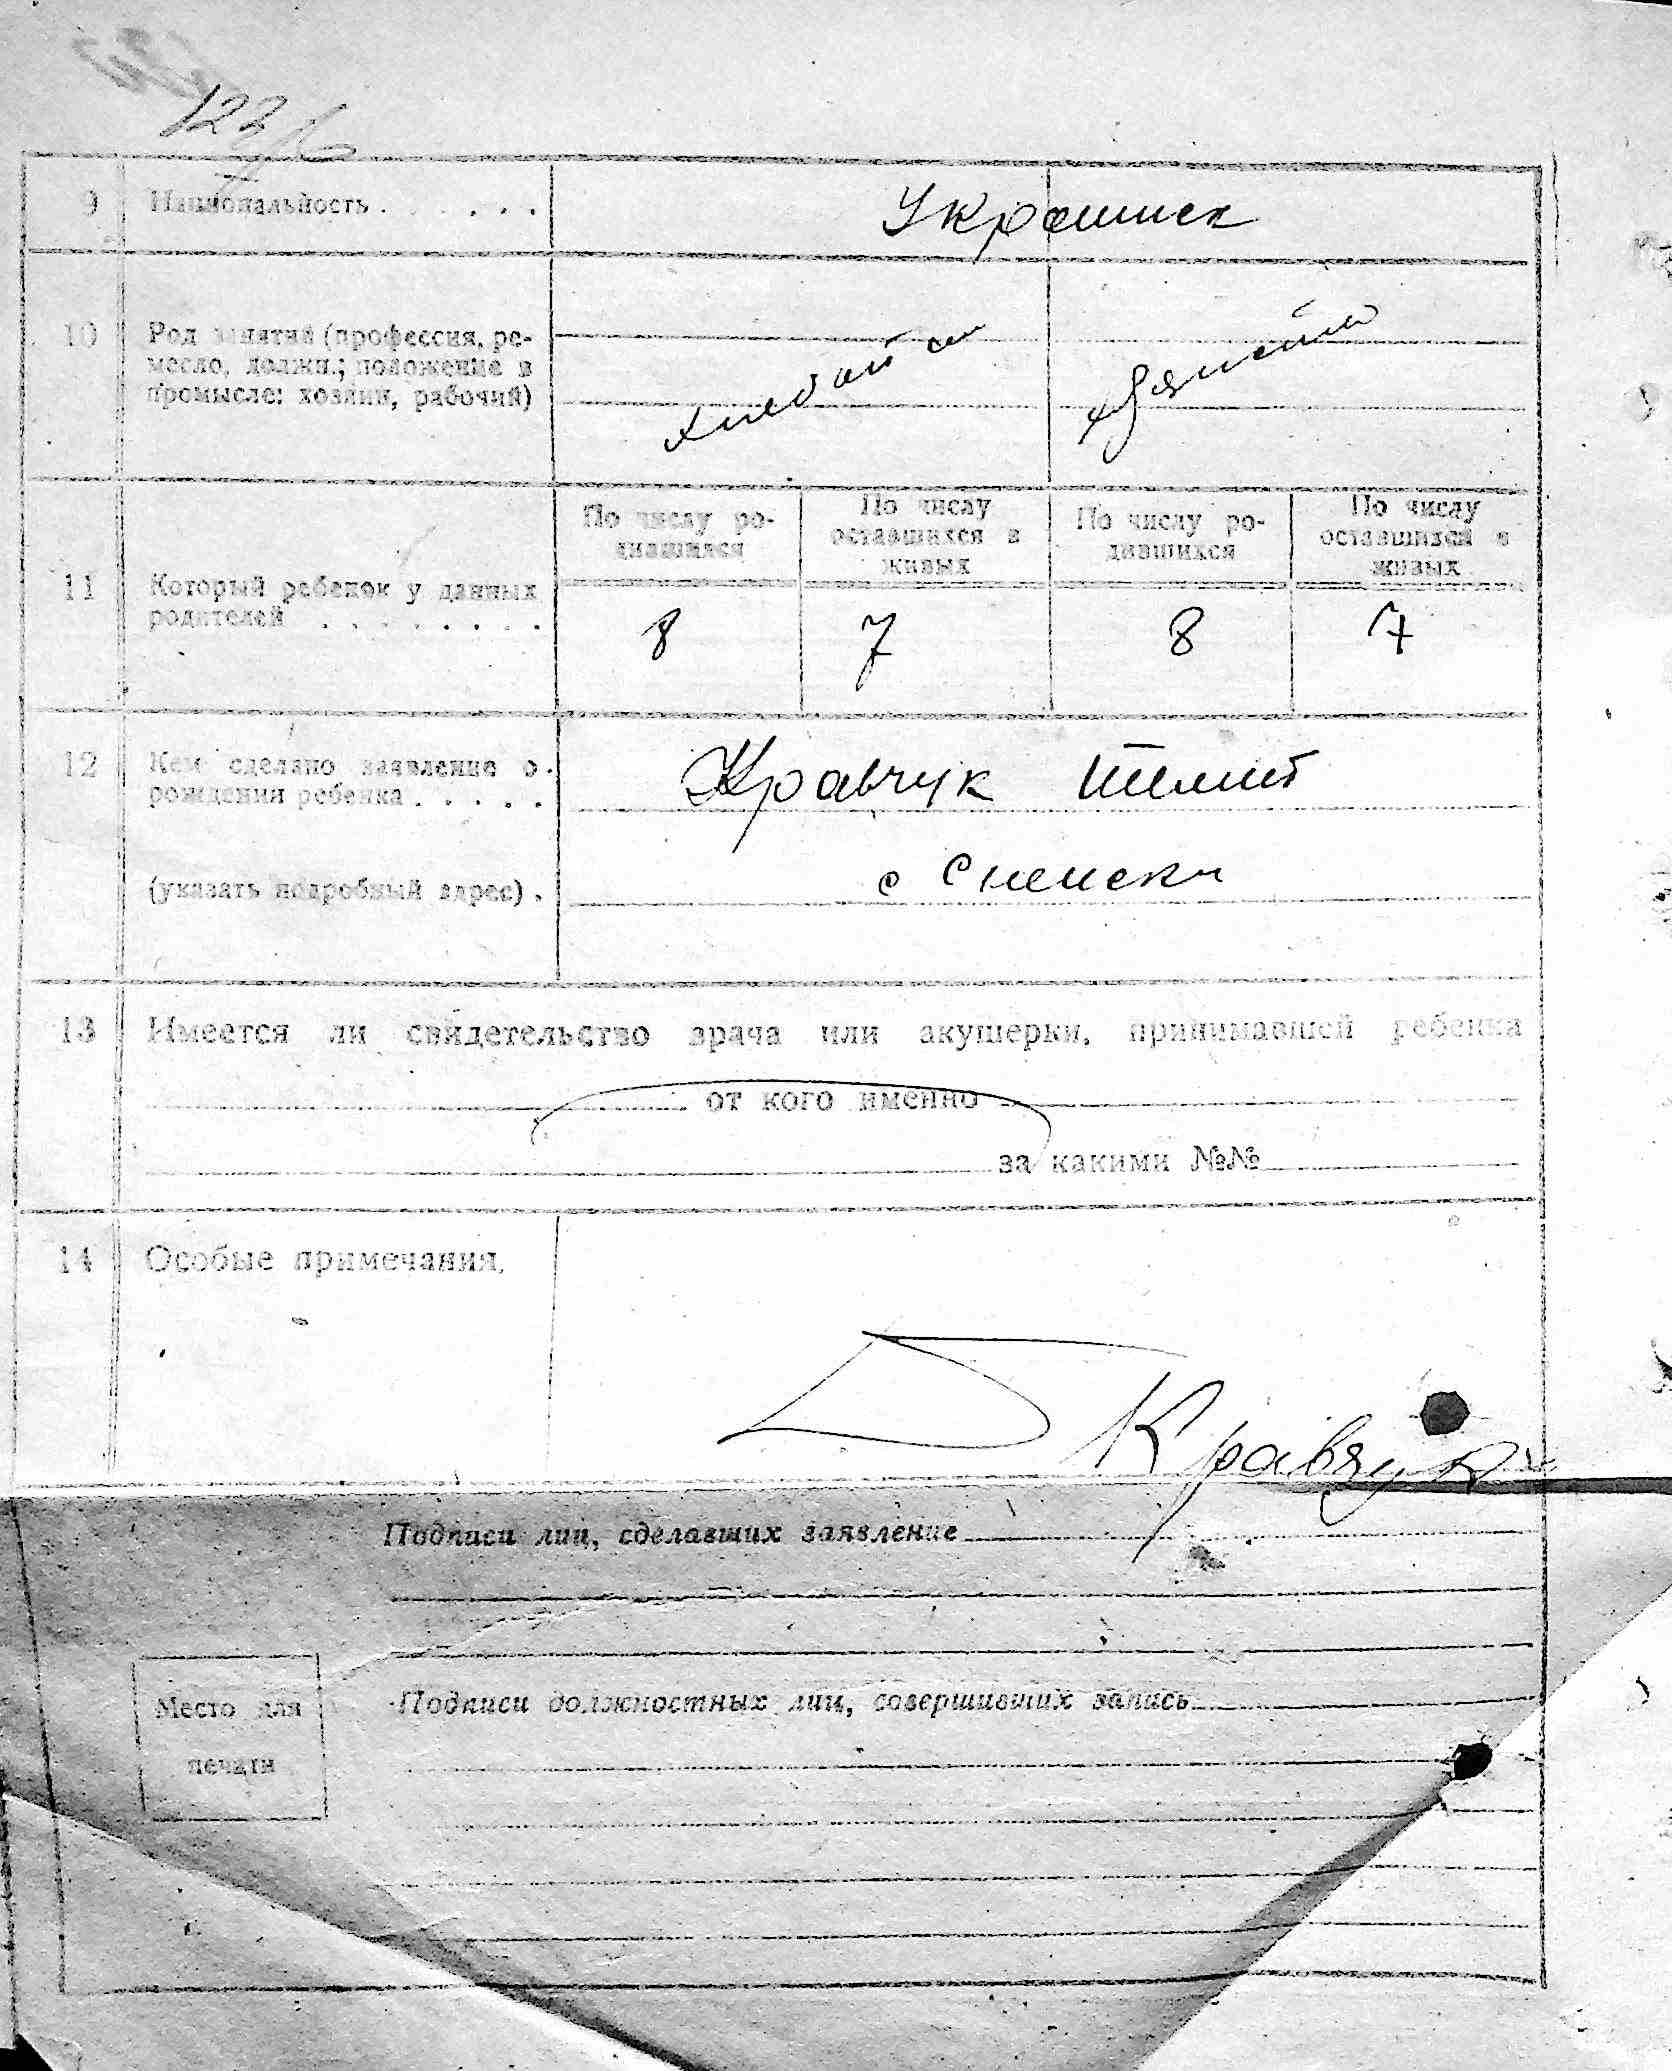 123
9 Национальность . . . . . .
Украинск
10 Род занятий (профессия, ре-
месло, должн.; положение в
промысле: хозяин, рабочий)
11 Который ребенок у данных
родителей . . . . . . . .
По числу ро-
дившихся
По числу
оставшихся в
живых
По числу ро-
дившихся
По числу
оставшихся в
живых
8 7 8 7
12 Кем сделано заявление о
рождении ребенка . . . . .
Кравчук
(указать подробный адрес) .
с
13 Имеется ли свидетельство врача или акушерки, принимавшей ребенка
от кого именно
за какими №№
14 Особые примечания.
Кравчук
Подписи лиц, сделавших заявление
Место для
печати
Подписи должностных лиц, совершивших запись